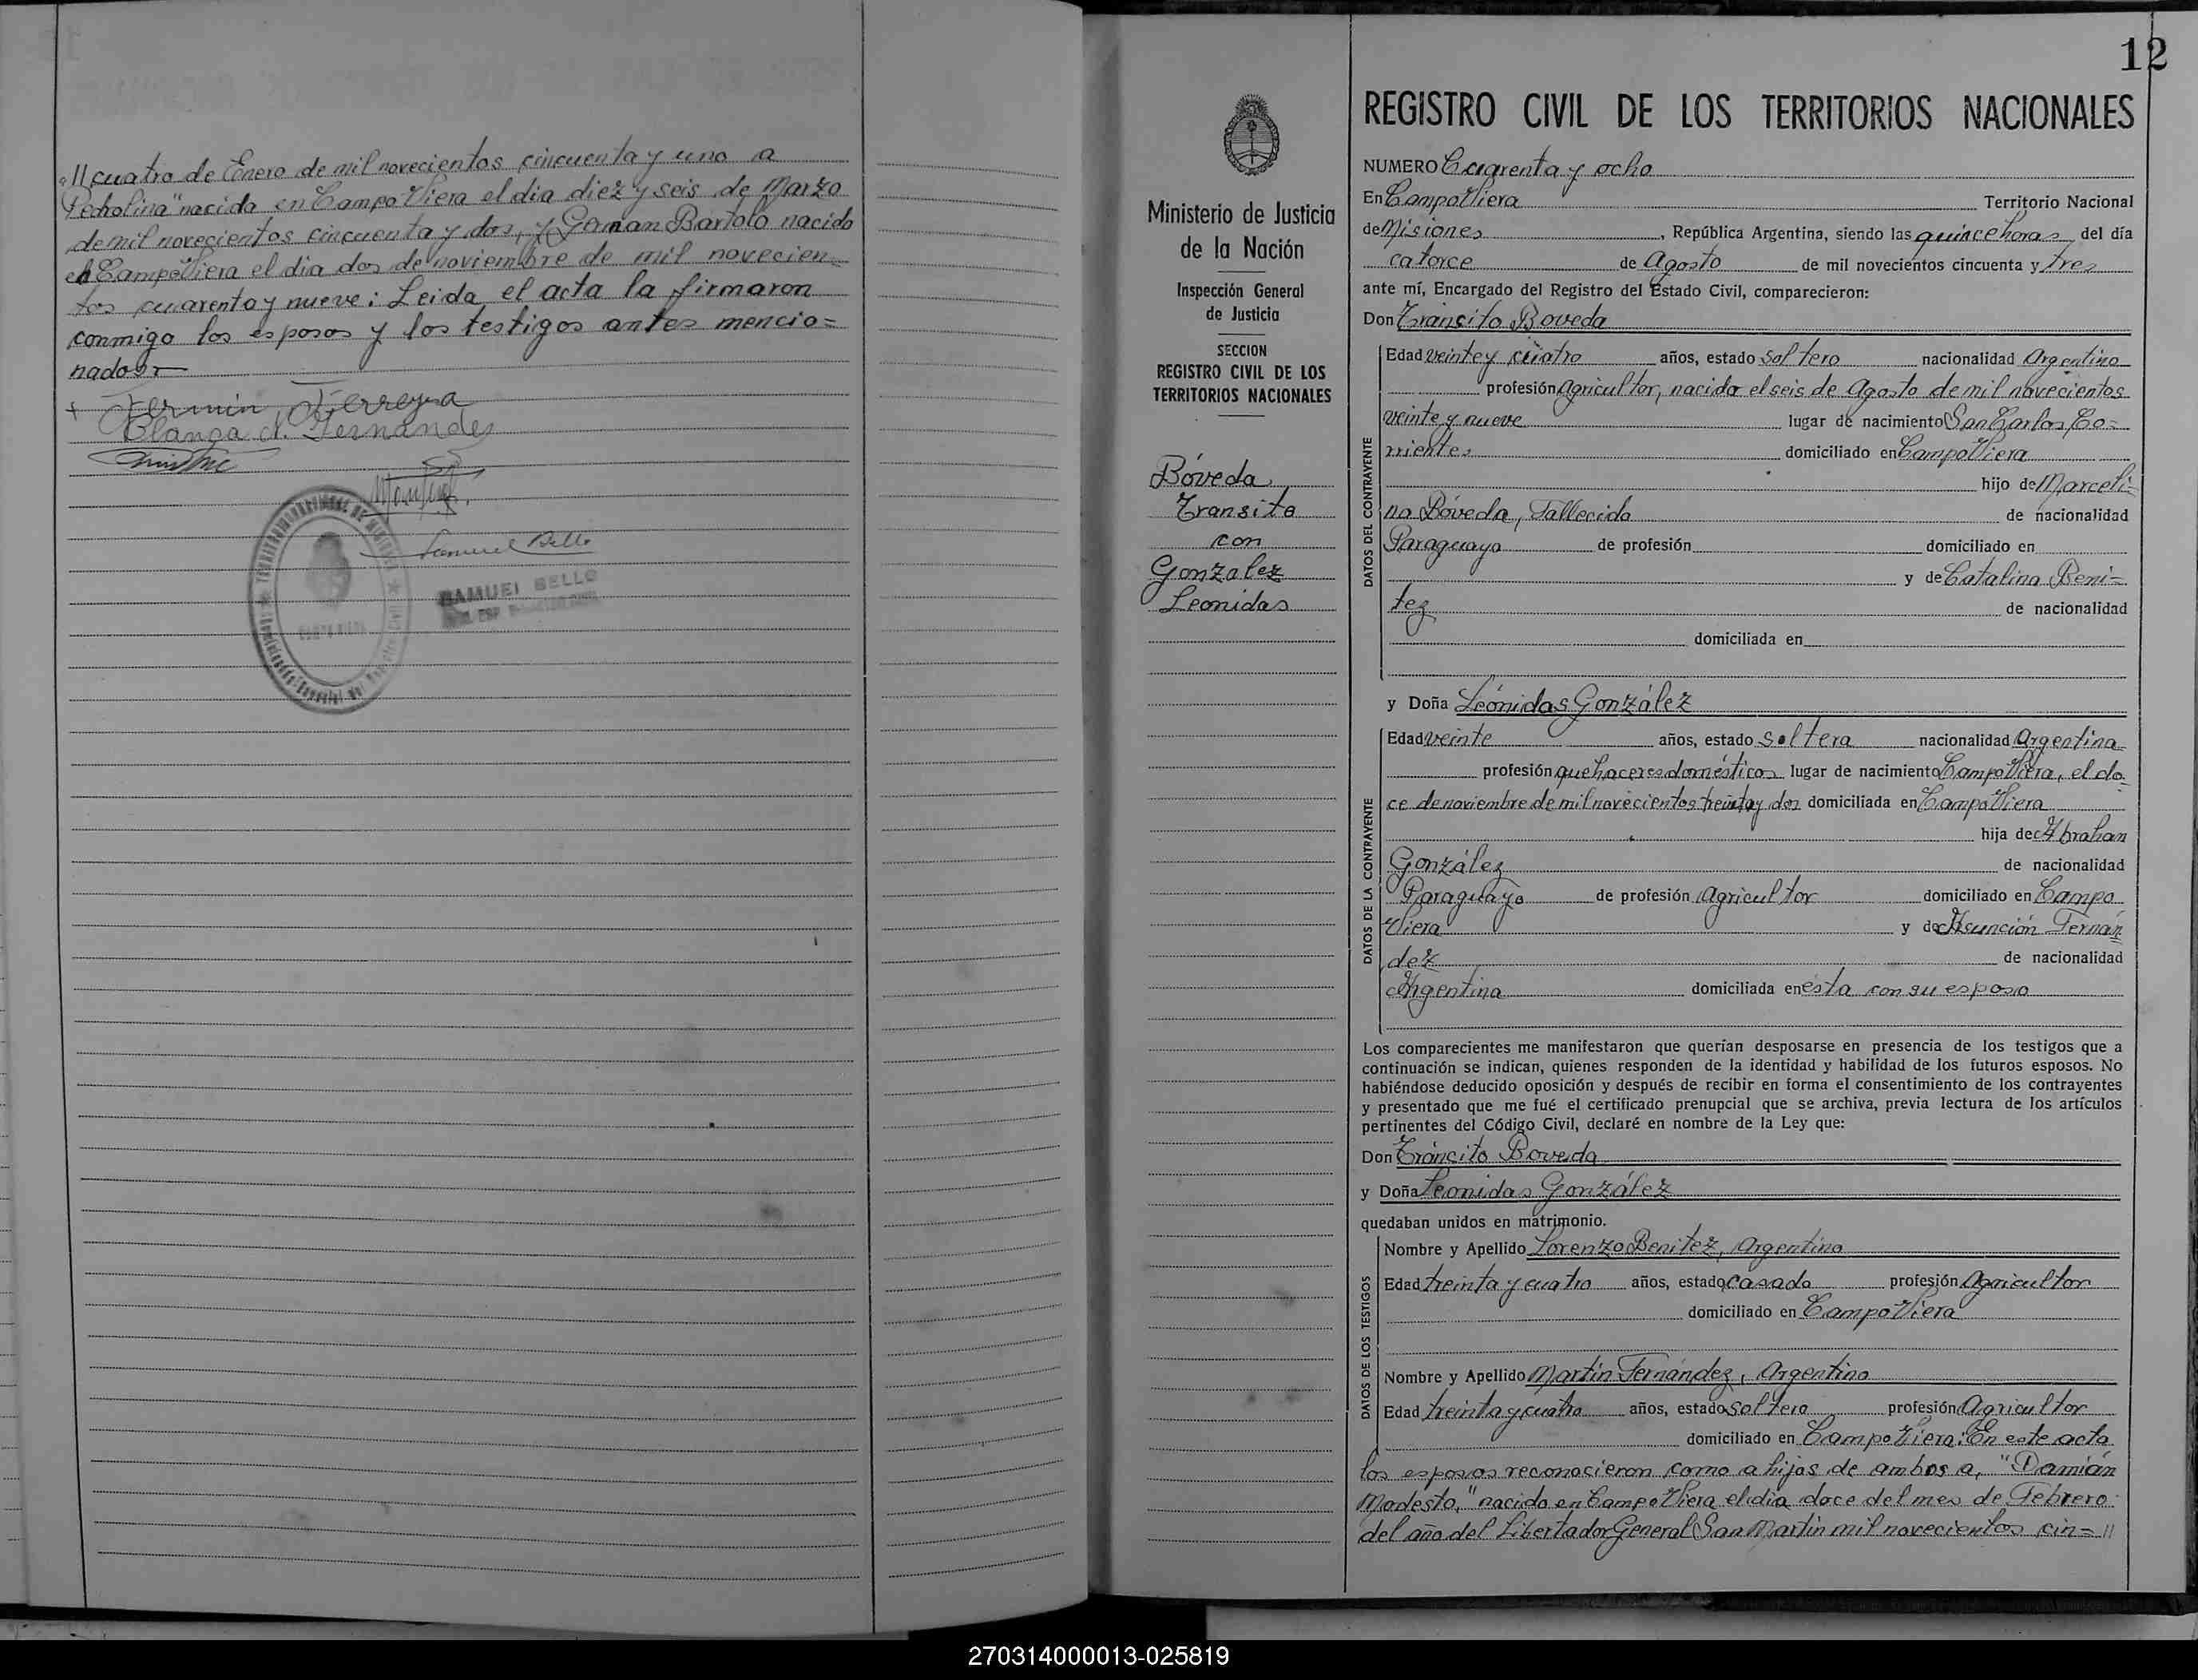 "11 cuatro de Enero de mil novecientos cincuenta y uno a
Pedrolina" nacida en Campo Viera el dia diez y seis de Marzo
de mil novecientos cincuenta y dos, y German Bartolo nacido
en Campo Viera el dia dos de noviembre de mil novecien=
tos cuarenta y nueve: Leida el acta la firmaron
conmigo los esposos y los testigos antes mencio=
nados=
+ Fermin Ferreyra
Blanca A. Fernandes
Samuel Bello
SAMUEL BELLO
12
REGISTRO CIVIL DE LOS TERRITORIOS NACIONALES
Ministerio de Justicia
de la Nación
Inspección General
de Justicia
SECCION
REGISTRO CIVIL DE LOS
TERRITORIOS NACIONALES
Bóveda
Transito
con
Gonzalez
Leonidas
NUMERO Cuarenta y ocho
En Campo Viera Territorio Nacional
de Misiones, República Argentina, siendo las quince horas del día
catorce de Agosto de mil novecientos cincuenta y tres
ante mí, Encargado del Registro del Estado Civil, comparecieron:
Don Tráncito Boveda
DATOS DEL CONTRAYENTE
Edad veinte y cuatro años, estado soltero nacionalidad Argentino
profesión Agricultor, nacido el seis de Agosto de mil novecientos
veinte y nueve lugar de nacimiento San Carlos Co=
rrientes domiciliado en Campo Viera
hijo de Marceli=
no Bóveda, Fallecido de nacionalidad
Paraguayo de profesión domiciliado en
y de Catalina Beni=
tez de nacionalidad
domiciliada en
y Doña Leónidas González
DATOS DE LA CONTRAYENTE
Edad veinte años, estado soltera nacionalidad Argentina
profesión quehaceres domésticos lugar de nacimiento Campo Viera, el do=
ce de noviembre de mil novecientos treinta y dos domiciliada en Campo Viera
hija de Abrahan
González de nacionalidad
Paraguayo de profesión Agricultor domiciliado en Campo
Viera y de Asunción Fernán
dez de nacionalidad
Argentina domiciliada en esta con su esposo
Los comparecientes me manifestaron que querían desposarse en presencia de los testigos que a
continuación se indican, quienes responden de la identidad y habilidad de los futuros esposos. No
habiéndose deducido oposición y después de recibir en forma el consentimiento de los contrayentes
y presentado que me fué el certificado prenupcial que se archiva, previa lectura de los artículos
pertinentes del Código Civil, declaré en nombre de la Ley que:
Don Tráncito Boveda
y Doña Leonidas González
quedaban unidos en matrimonio.
DATOS DE LOS TESTIGOS
Nombre y Apellido Lorenzo Benitez, Argentino
Edad treinta y cuatro años, estado casado profesión Agricultor
domiciliado en Campo Viera
Nombre y Apellido Martín Fernández, Argentino
Edad treinta y cuatro años, estado soltero profesión Agricultor
domiciliado en Campo Viera: En este acta
los esposos reconocieron como a hijos de ambos a, "Damián
Modesto," nacido en Campo Viera el dia doce del mes de Febrero
del año del Libertador General San Martin mil novecientos cin= 11
270314000013-025819